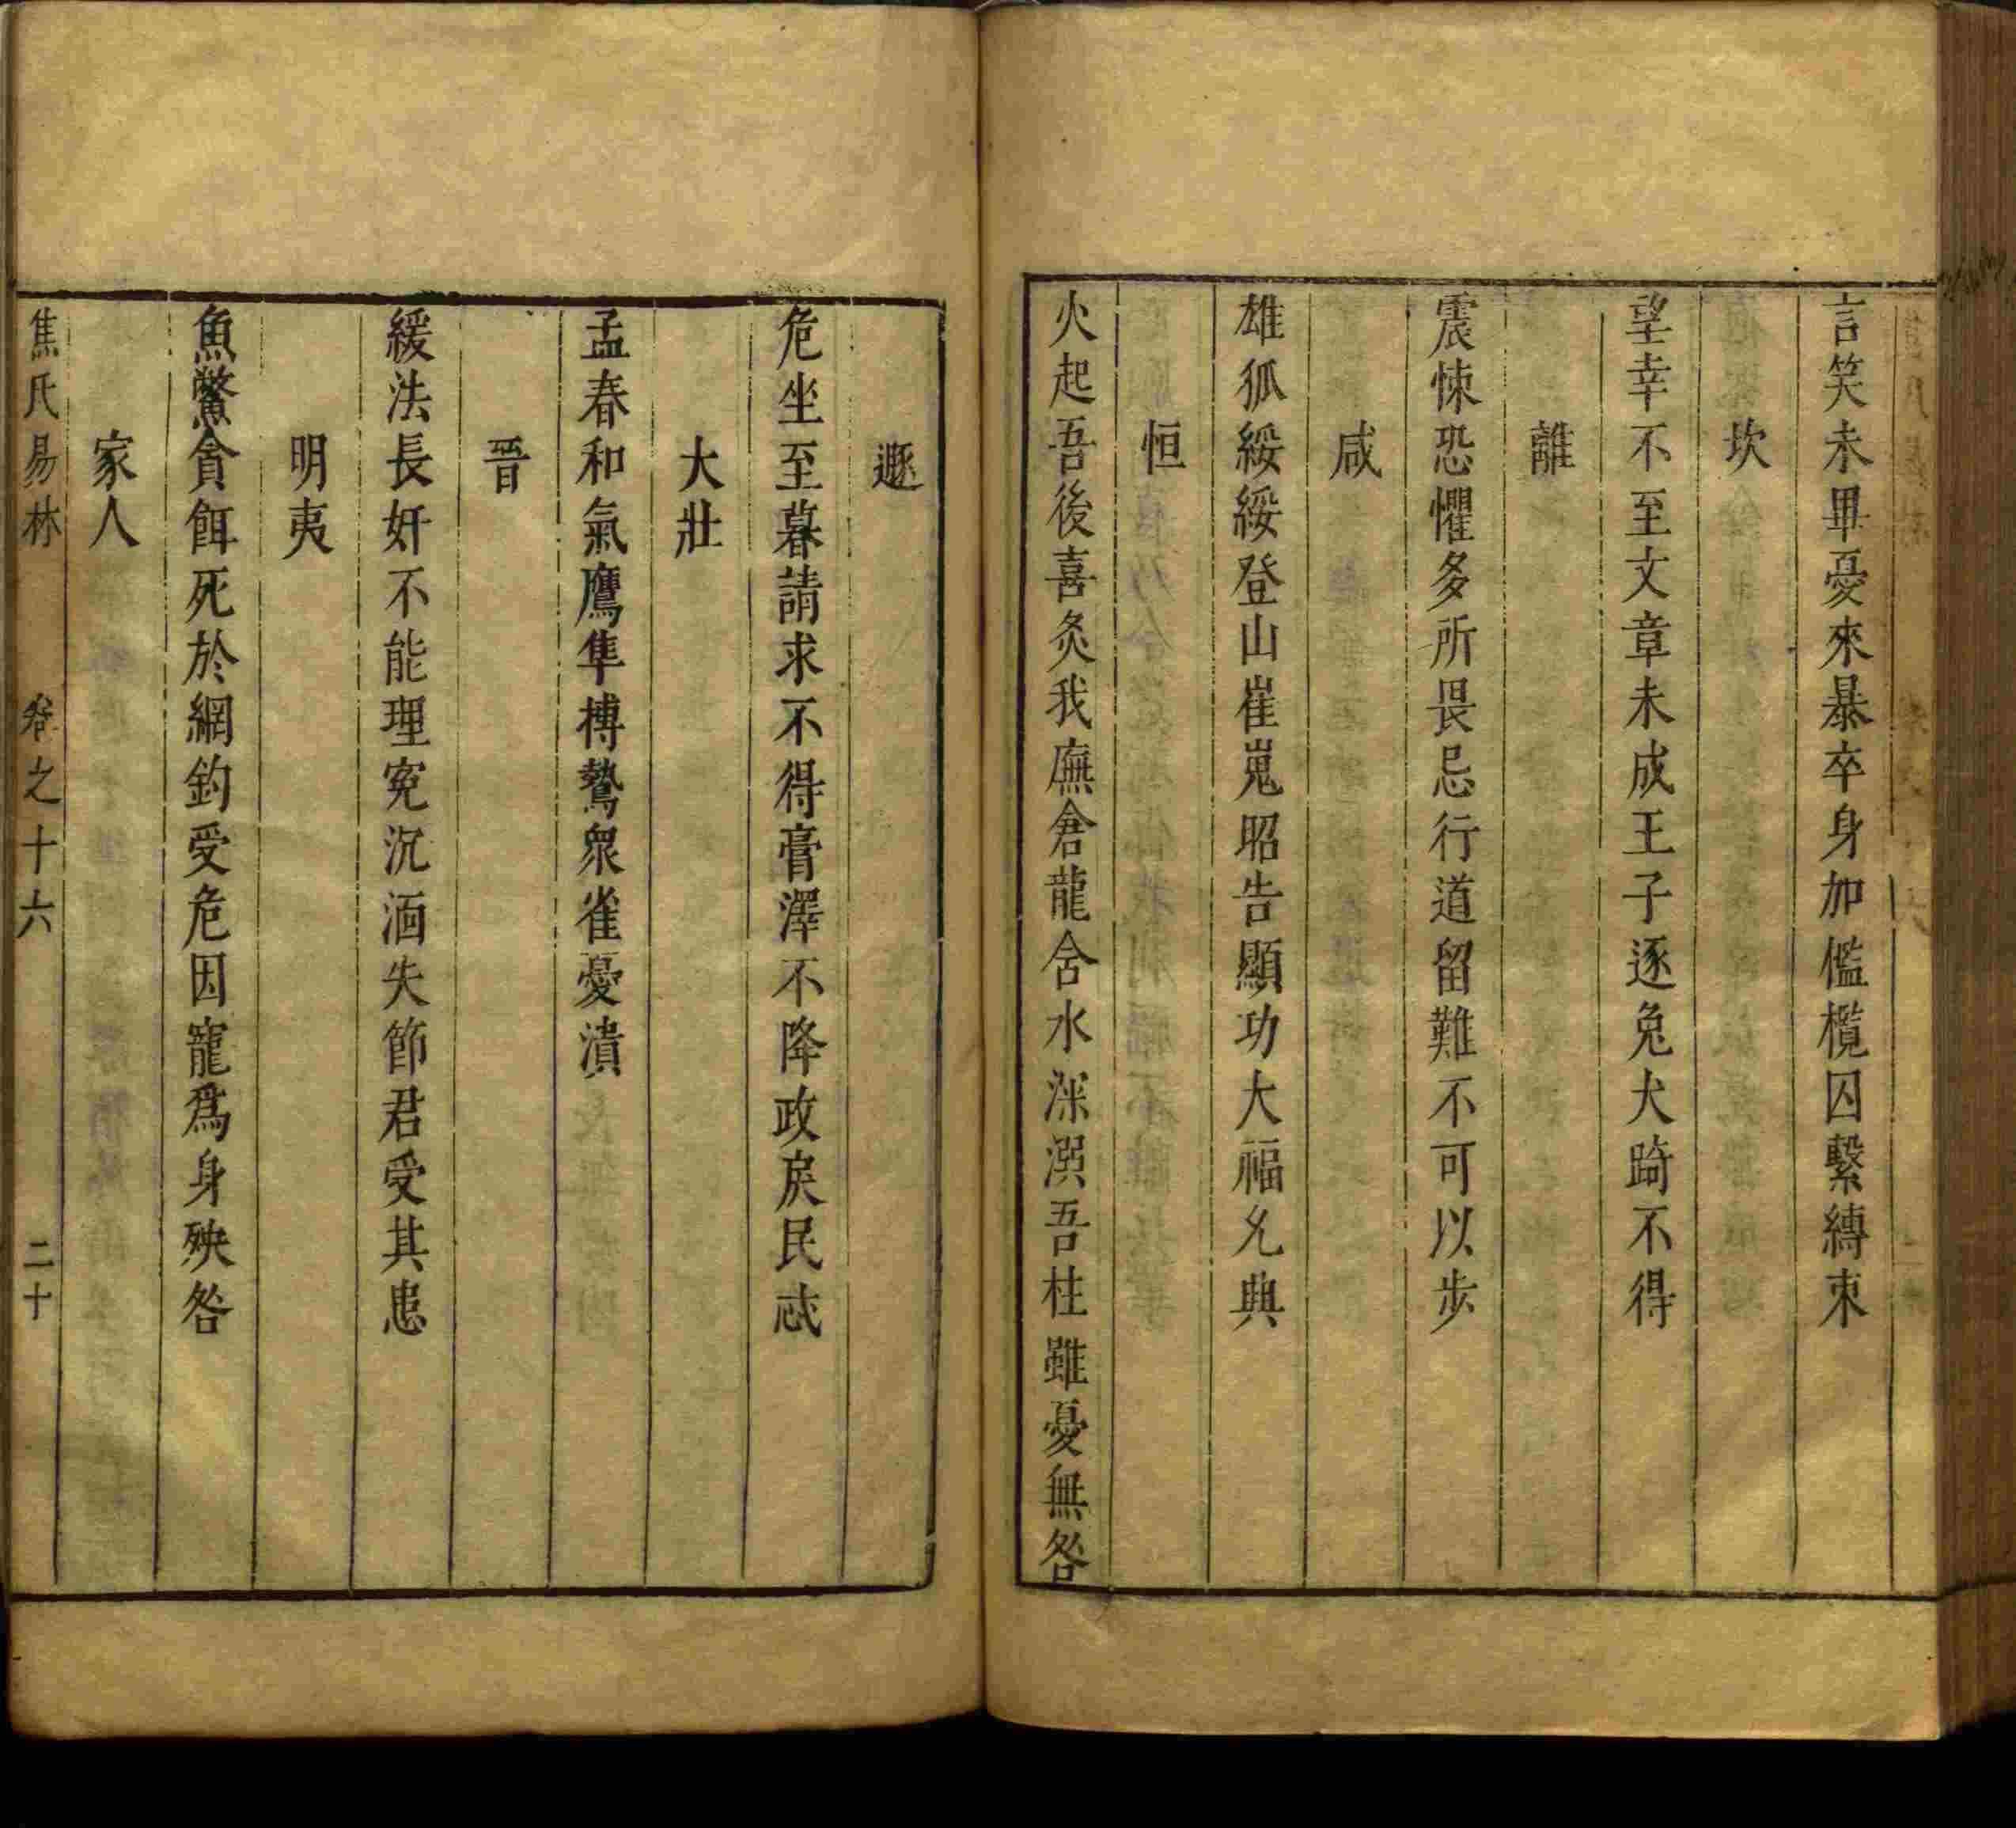 言笑未畢憂來暴卒身加檻欖囚繫縛束
坎
望幸不至文章未成王子逐兔犬踦不得
離
震悚恐懼多所畏忌行道留難不可以步
咸
雄狐綏綏登山崔嵬昭告顯功大福允興
恒
火起吾後喜炙我廡倉龍含水深溺吾柱雖憂無咎
遯
危坐至暮請求不得膏澤不降政戾民忒
大壯
孟春和氣鷹隼搏鷙衆雀憂潰
晉
緩法長奸不能理寃沉湎失節君受其患
明夷
魚鱉貪餌死於網釣受危因寵爲身殃咎
家人
焦氏易林 卷之十六 二十